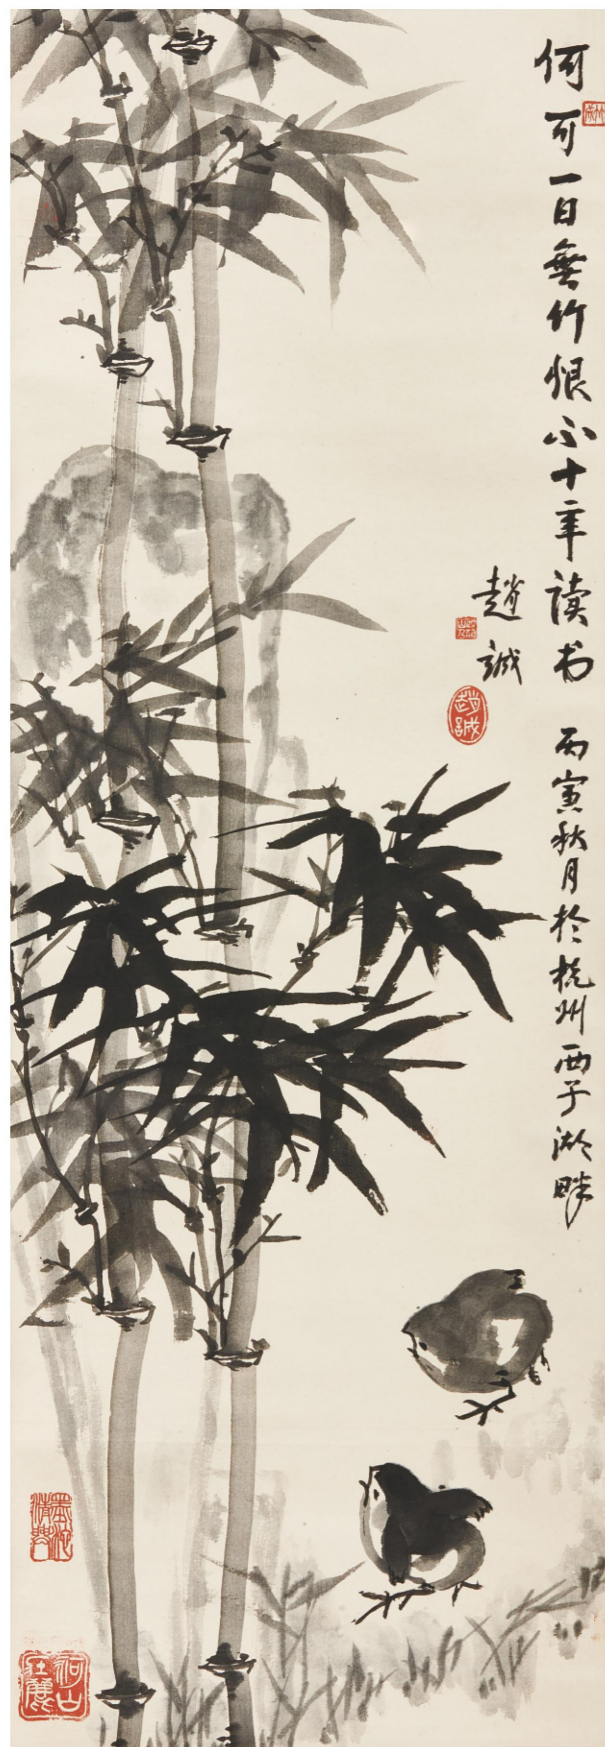 何可一日無竹恨不十年读书 丙寅秋月於杭州西子湖畔
趙誠
趙誠